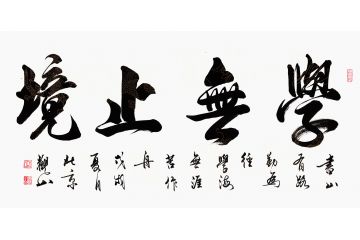 學無止境
書山
有路
勤為
徑
學海
無涯
苦作
舟
戊戌
夏月
北京
山